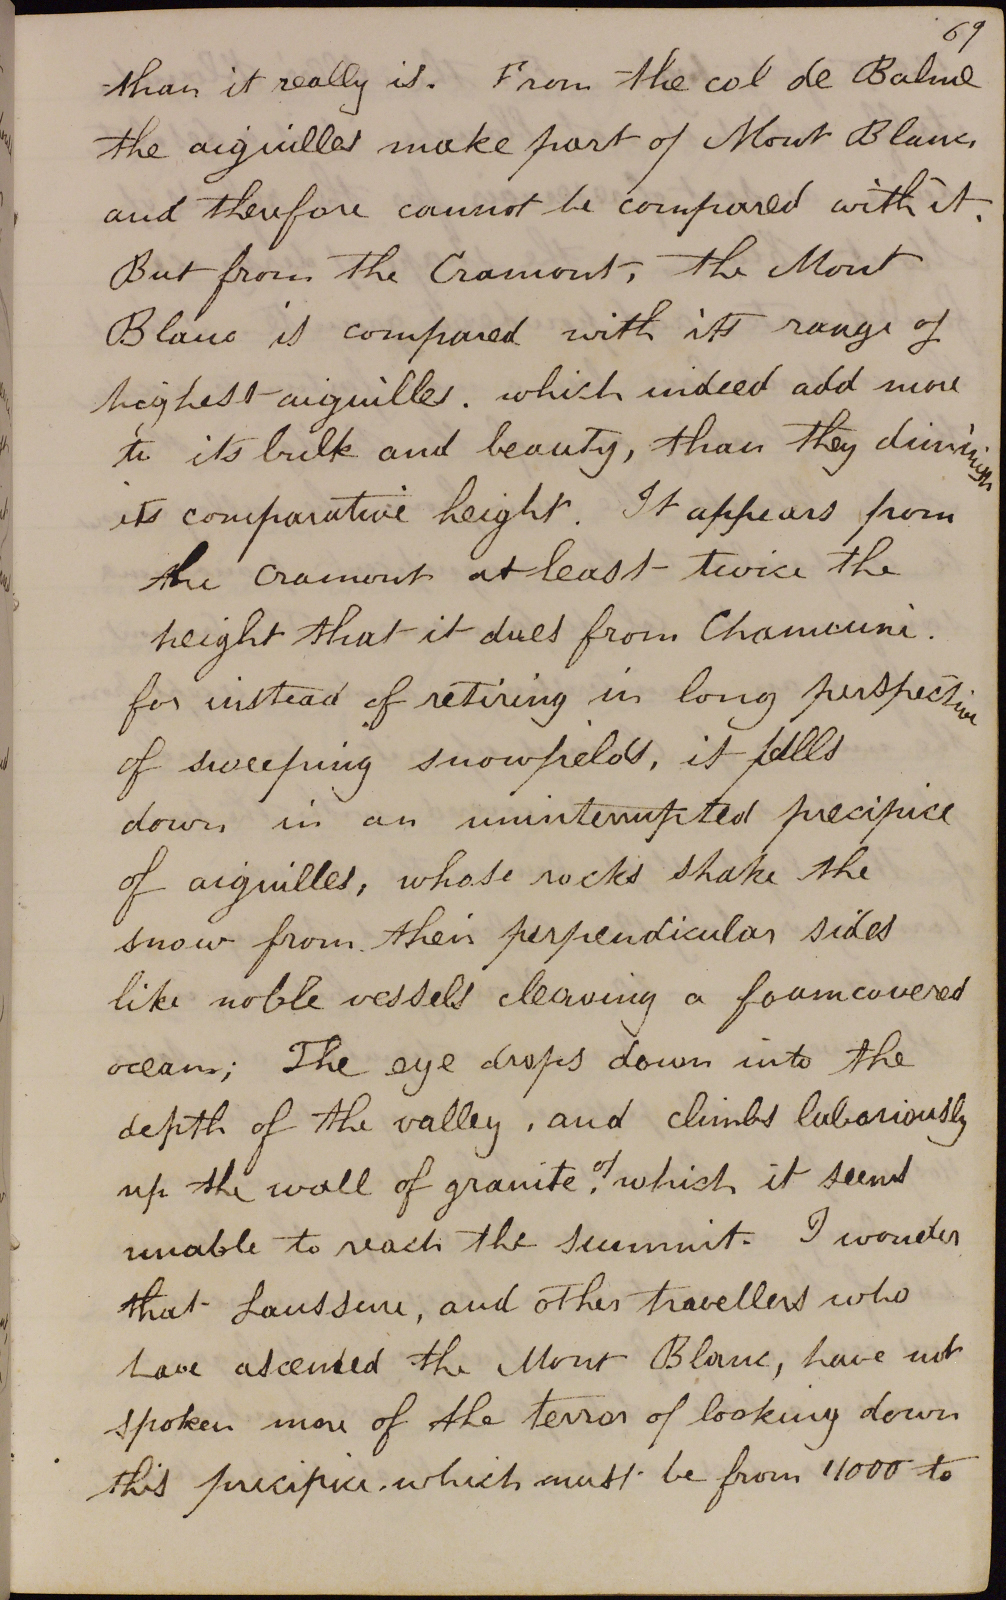 69
than it really is. From the col de Balme
the aiguilles make part of Mont Blanc,
and therefore cannot be compared with it.
But from the Cramont, the Mont
Blanc is compared with its range of
highest aiguilles. which indeed add more
to its bulk and beauty, than they diminish
its comparative height. It appears from
the Cramont at least twice the
height that it does from Chamouni.
for instead of retiring in long perspective
of sweeping snowfields, it falls
down in an uninterrupted precipice
of aiguilles, whose rocks shake the
snow from their perpendicular sides
like noble vessels cleaving a foamcovered
ocean; The eye drops down into the
depth of the valley, and climbs laboriously
up the wall of granite, of which it seems
unable to reach the summit. I wonder
that Saussure, and other travellers who
have ascended the Mont Blanc, have not
spoken more of the terror of looking down
this precipice. which must be from 11000 to